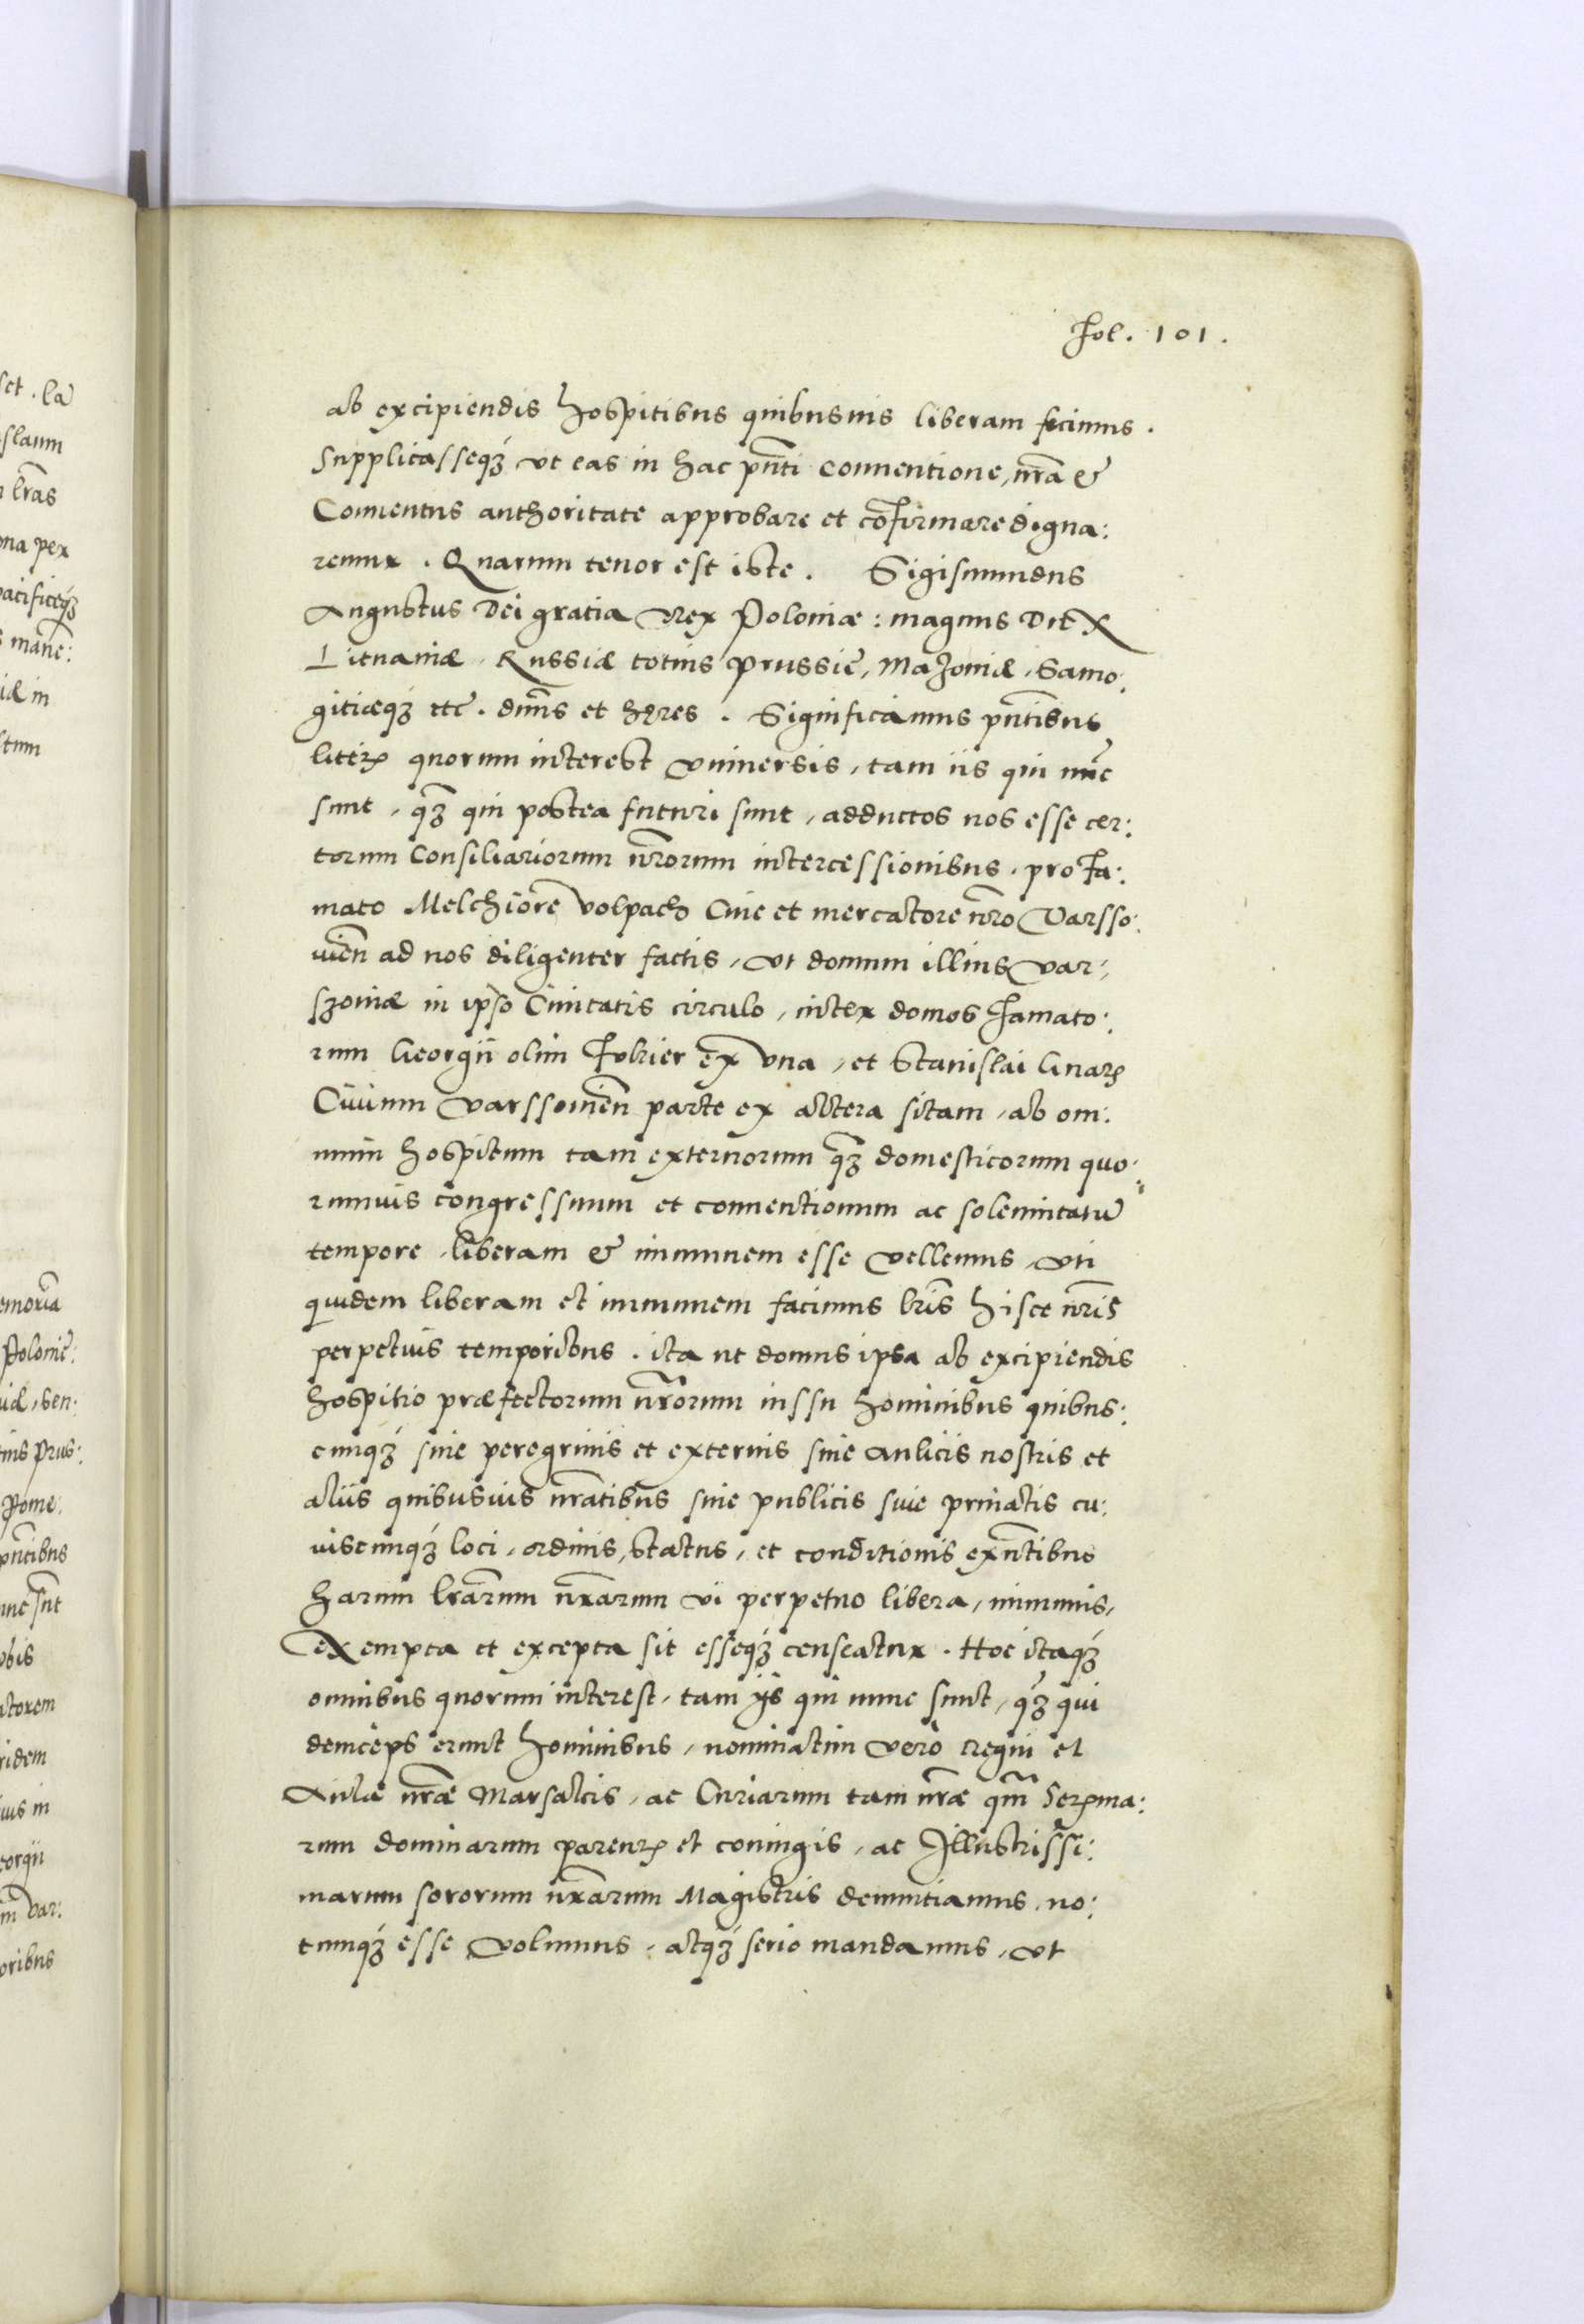 Fol. 101.
ab excipiendis hospitibus quibusuis liberam fecimus.
Supplicasseqꝫ vt eas in hac pñti conuentione, nrã &
Conuentus authoritate approbare et cõfirmare digna:
remur. Quarum tenor est iste. Sigismundus
Augustus Dei gratia Rex Poloniæ: magnus Dux
Lituaniæ, Russiæ totius Prussie, Mazouiæ, Samo:
gitiæqꝫ etc. dnns et hęres. Significamus pñtibus
literꝭ quorum interest vniuersis, tam iis qui nũc
sunt, qꝫ qui postea futuri sunt, adductos nos esse cer:
torum Consiliariorum nrõrum intercessionibus, pro Fa:
mato Melchiore Volpach Ciue et mercatore nrõ Varsso:
uien̄ ad nos diligenter factis, vt domum illius Var:
szouiæ in ipso Ciuitatis circulo, inter domos Famato:
rum Georgii olim Fukier ex vna, et Stanislai
Ciuium Varssouien̄ parte ex altera sitam, ab om:
nium hospitum tam externorum qꝫ domesticorum quo:
rumuis congressuum et conuentionum ac solennitatũ
tempore, liberam & immunem esse vellemus, vti
quidem liberam et immunem facimus lrĩs hisce nrĩs
perpetuis temporibus. ita ut domus ipsa ab excipiendis
hospitio præfectorum nrõrum iussu hominibus quibus:
cunqꝫ siue peregrinis et externis siue aulicis nostris et
aliis quibusuis nrãtibus siue publicis siue priuatis cu:
uiscunqꝫ loci, ordinis, status, et conditionis exñtibus
harum lrãrum nrãrum vi perpetuo libera, immunis,
exempta et excepta sit esseqꝫ censeatur. Hoc itaqꝫ
omnibus quorum interest, tam ijs qui nunc sunt, qꝫ qui
deinceps erunt hominibus, nominatim verò regni et
Aulæ nrãe Marsalcis, ac Curiarum tam nrãe qm̃ Serꝭma:
rum dominarum parentꝭ et coniugis, ac Illustrissi:
marum sororum nrãrum Magistris denuntiamus, no:
tumqꝫ esse volumus, atqꝫ serio mandamus, vt